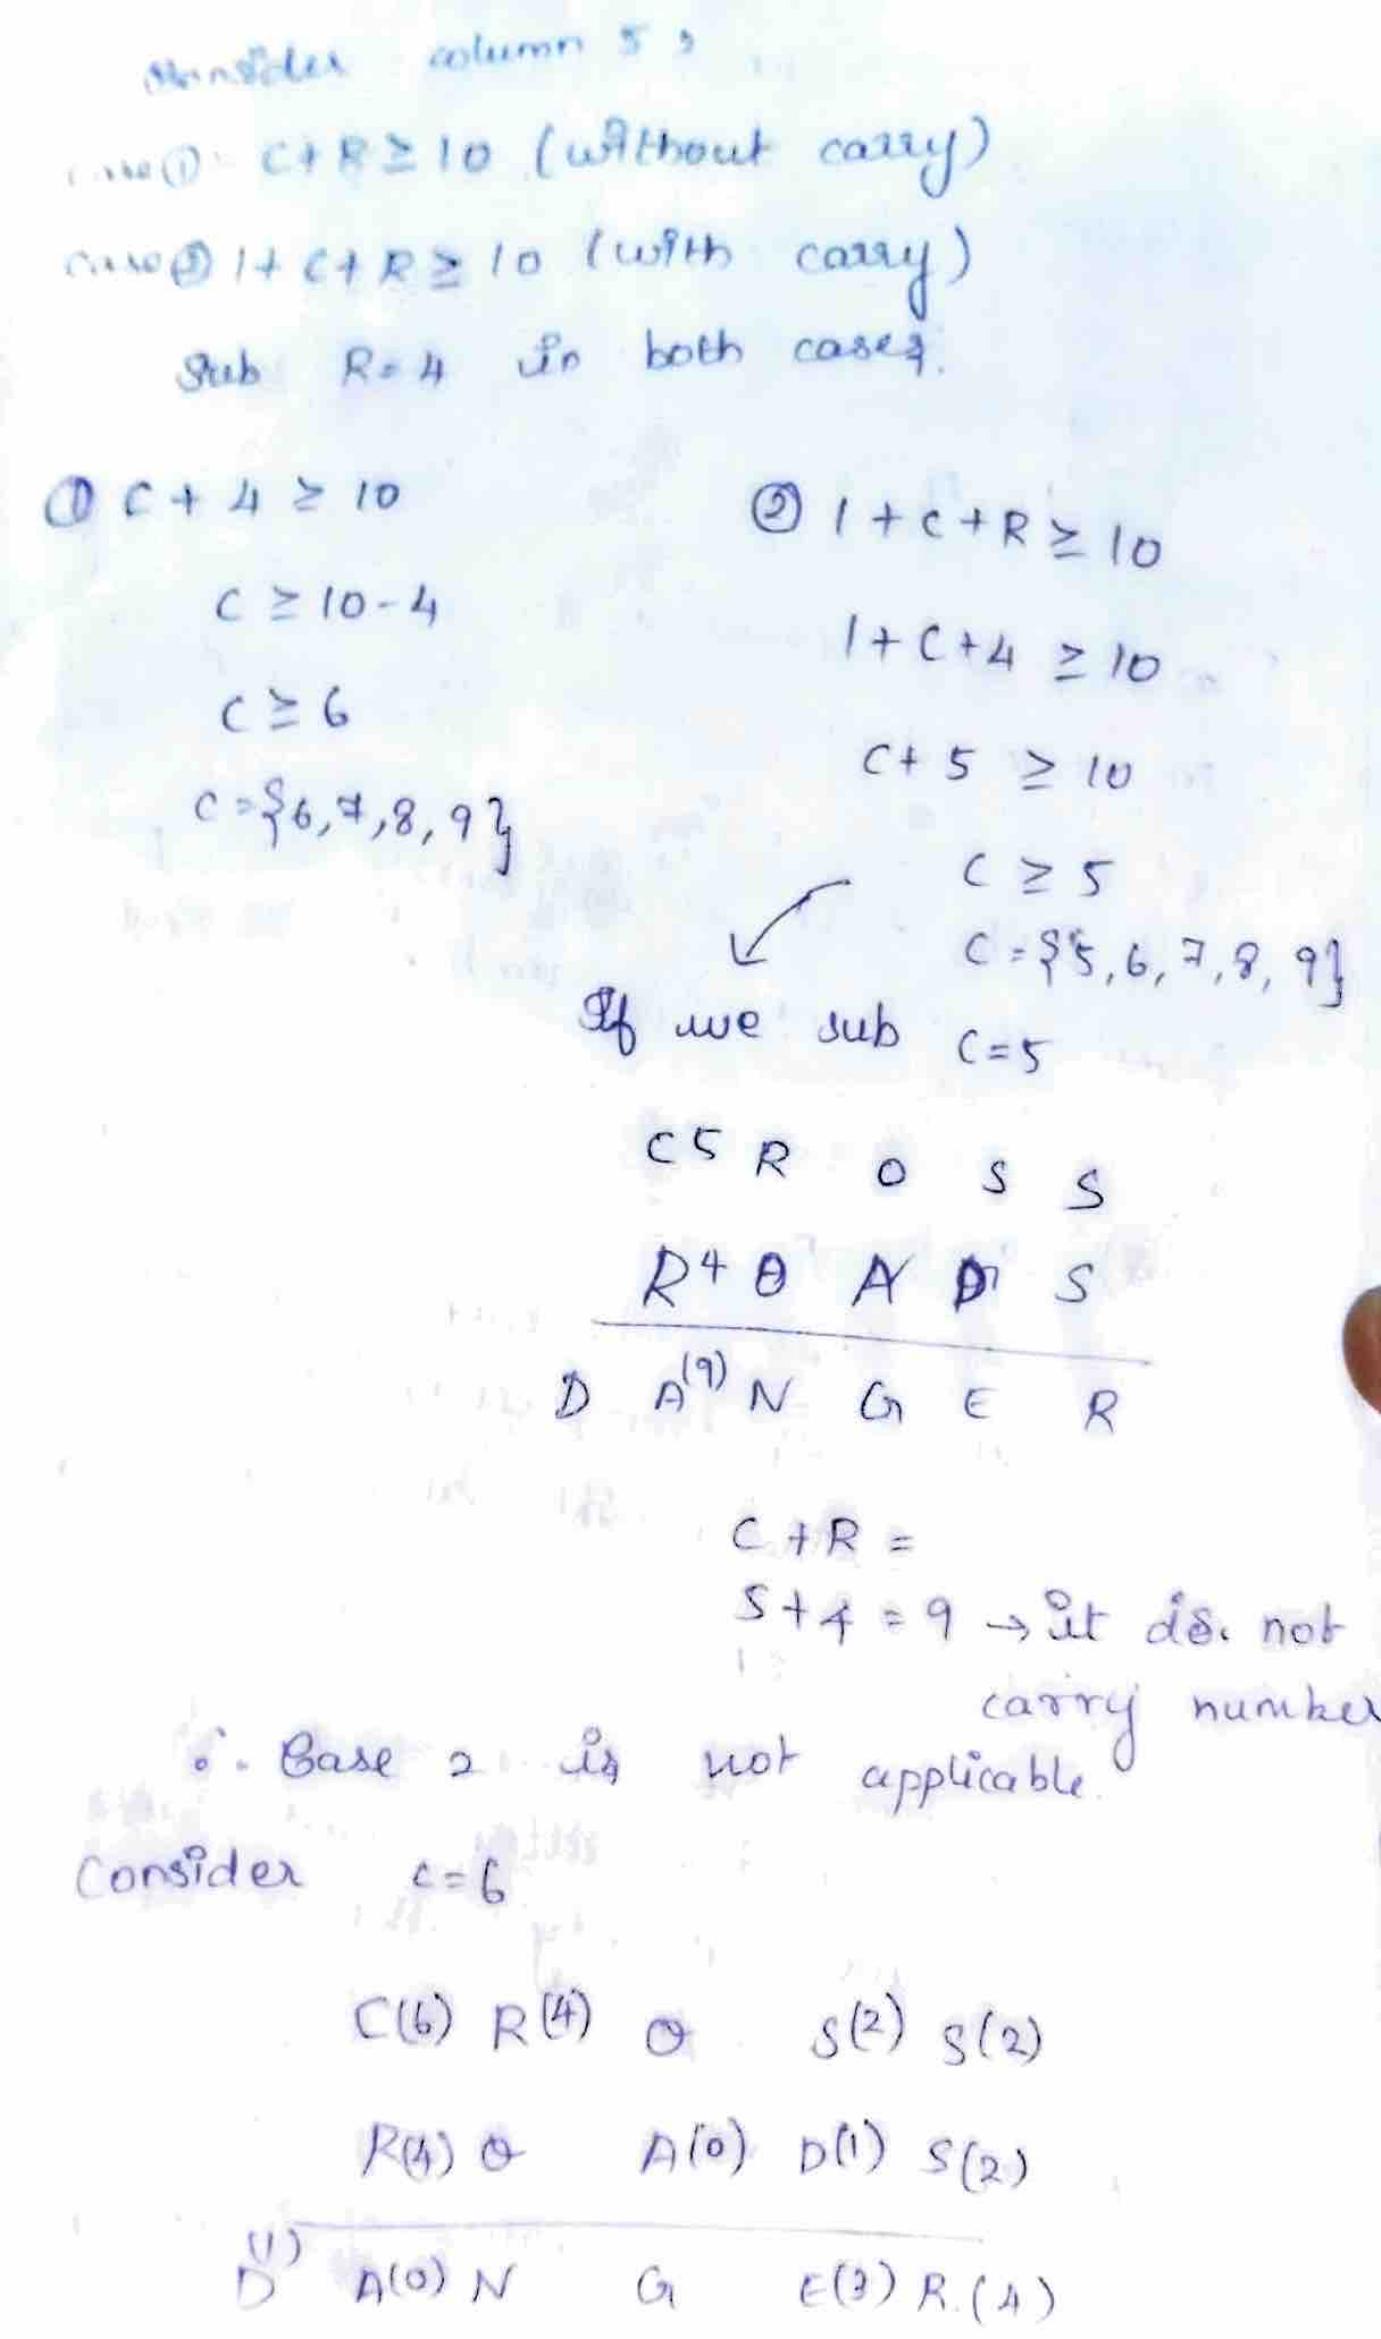 Consider column 5,
case ① C+R ≥ 10 (without carry)
case ② 1+C+R ≥ 10 (with carry)
Sub R=4 in both cases.
① C + 4 ≥ 10
C ≥ 10-4
C ≥ 6
C = {6,7,8,9}
② 1+C+R ≥ 10
1+C+4 ≥ 10
C+5 ≥ 10
C ≥ 5
C = {5,6,7,8,9}
If we sub C=5
C5 R O S S
R4 O A D S
D A(9) N G E R
C+R =
5+4 = 9 → it is not
carry number
∴ Case 2 is not applicable.
Consider C=6
C(6) R(4) O S(2) S(2)
R(4) O A(0) D(1) S(2)
D(1) A(0) N G E(3) R.(4)